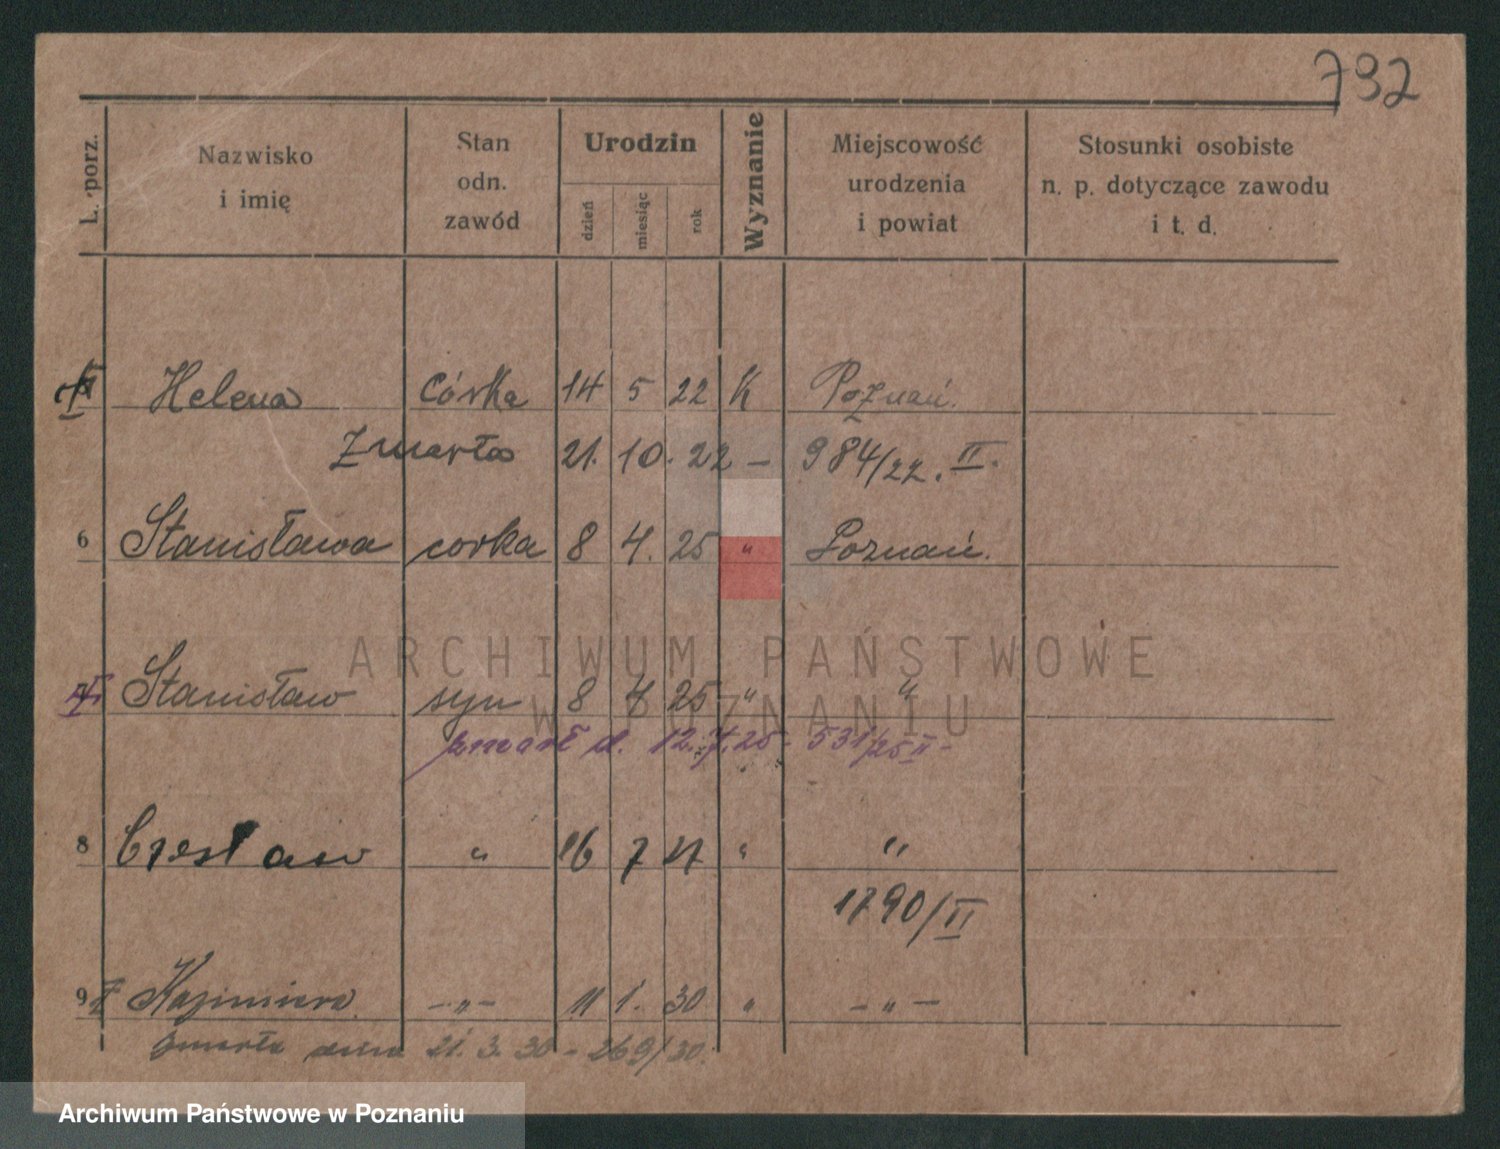 792
L. porz. Nazwisko i imię Stan odn. zawód Urodzin dzień miesiąc rok Wyznanie Miejscowość urodzenia i powiat Stosunki osobiste n. p. dotyczące zawodu i t. d.
Helena córka 14 5 22 K Poznań.
Zmarła 21. 10. 22 – 984/22. II.
6 Stanisława corka 8 4. 25 " Poznań.
ARCHIWUM PAŃSTWOWE
W POZNANIU
Stanisław syn 8 4 25 " "
zmarł d. 12.7.25 - 531/25 II -
8 Czesław " 16 7 27 " "
1790/II
9 Kazimiera - " - 11 1. 30 " - " -
Zmarła dnia 21. 3. 30 - 269/30.
Archiwum Państwowe w Poznaniu